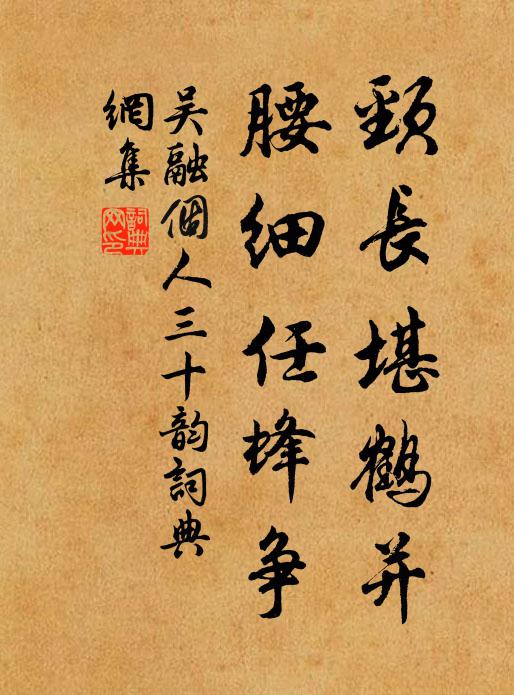 頸長堪鶴并
腰細任蜂争
吴融個人三十韵詞典
網集
詞典網印